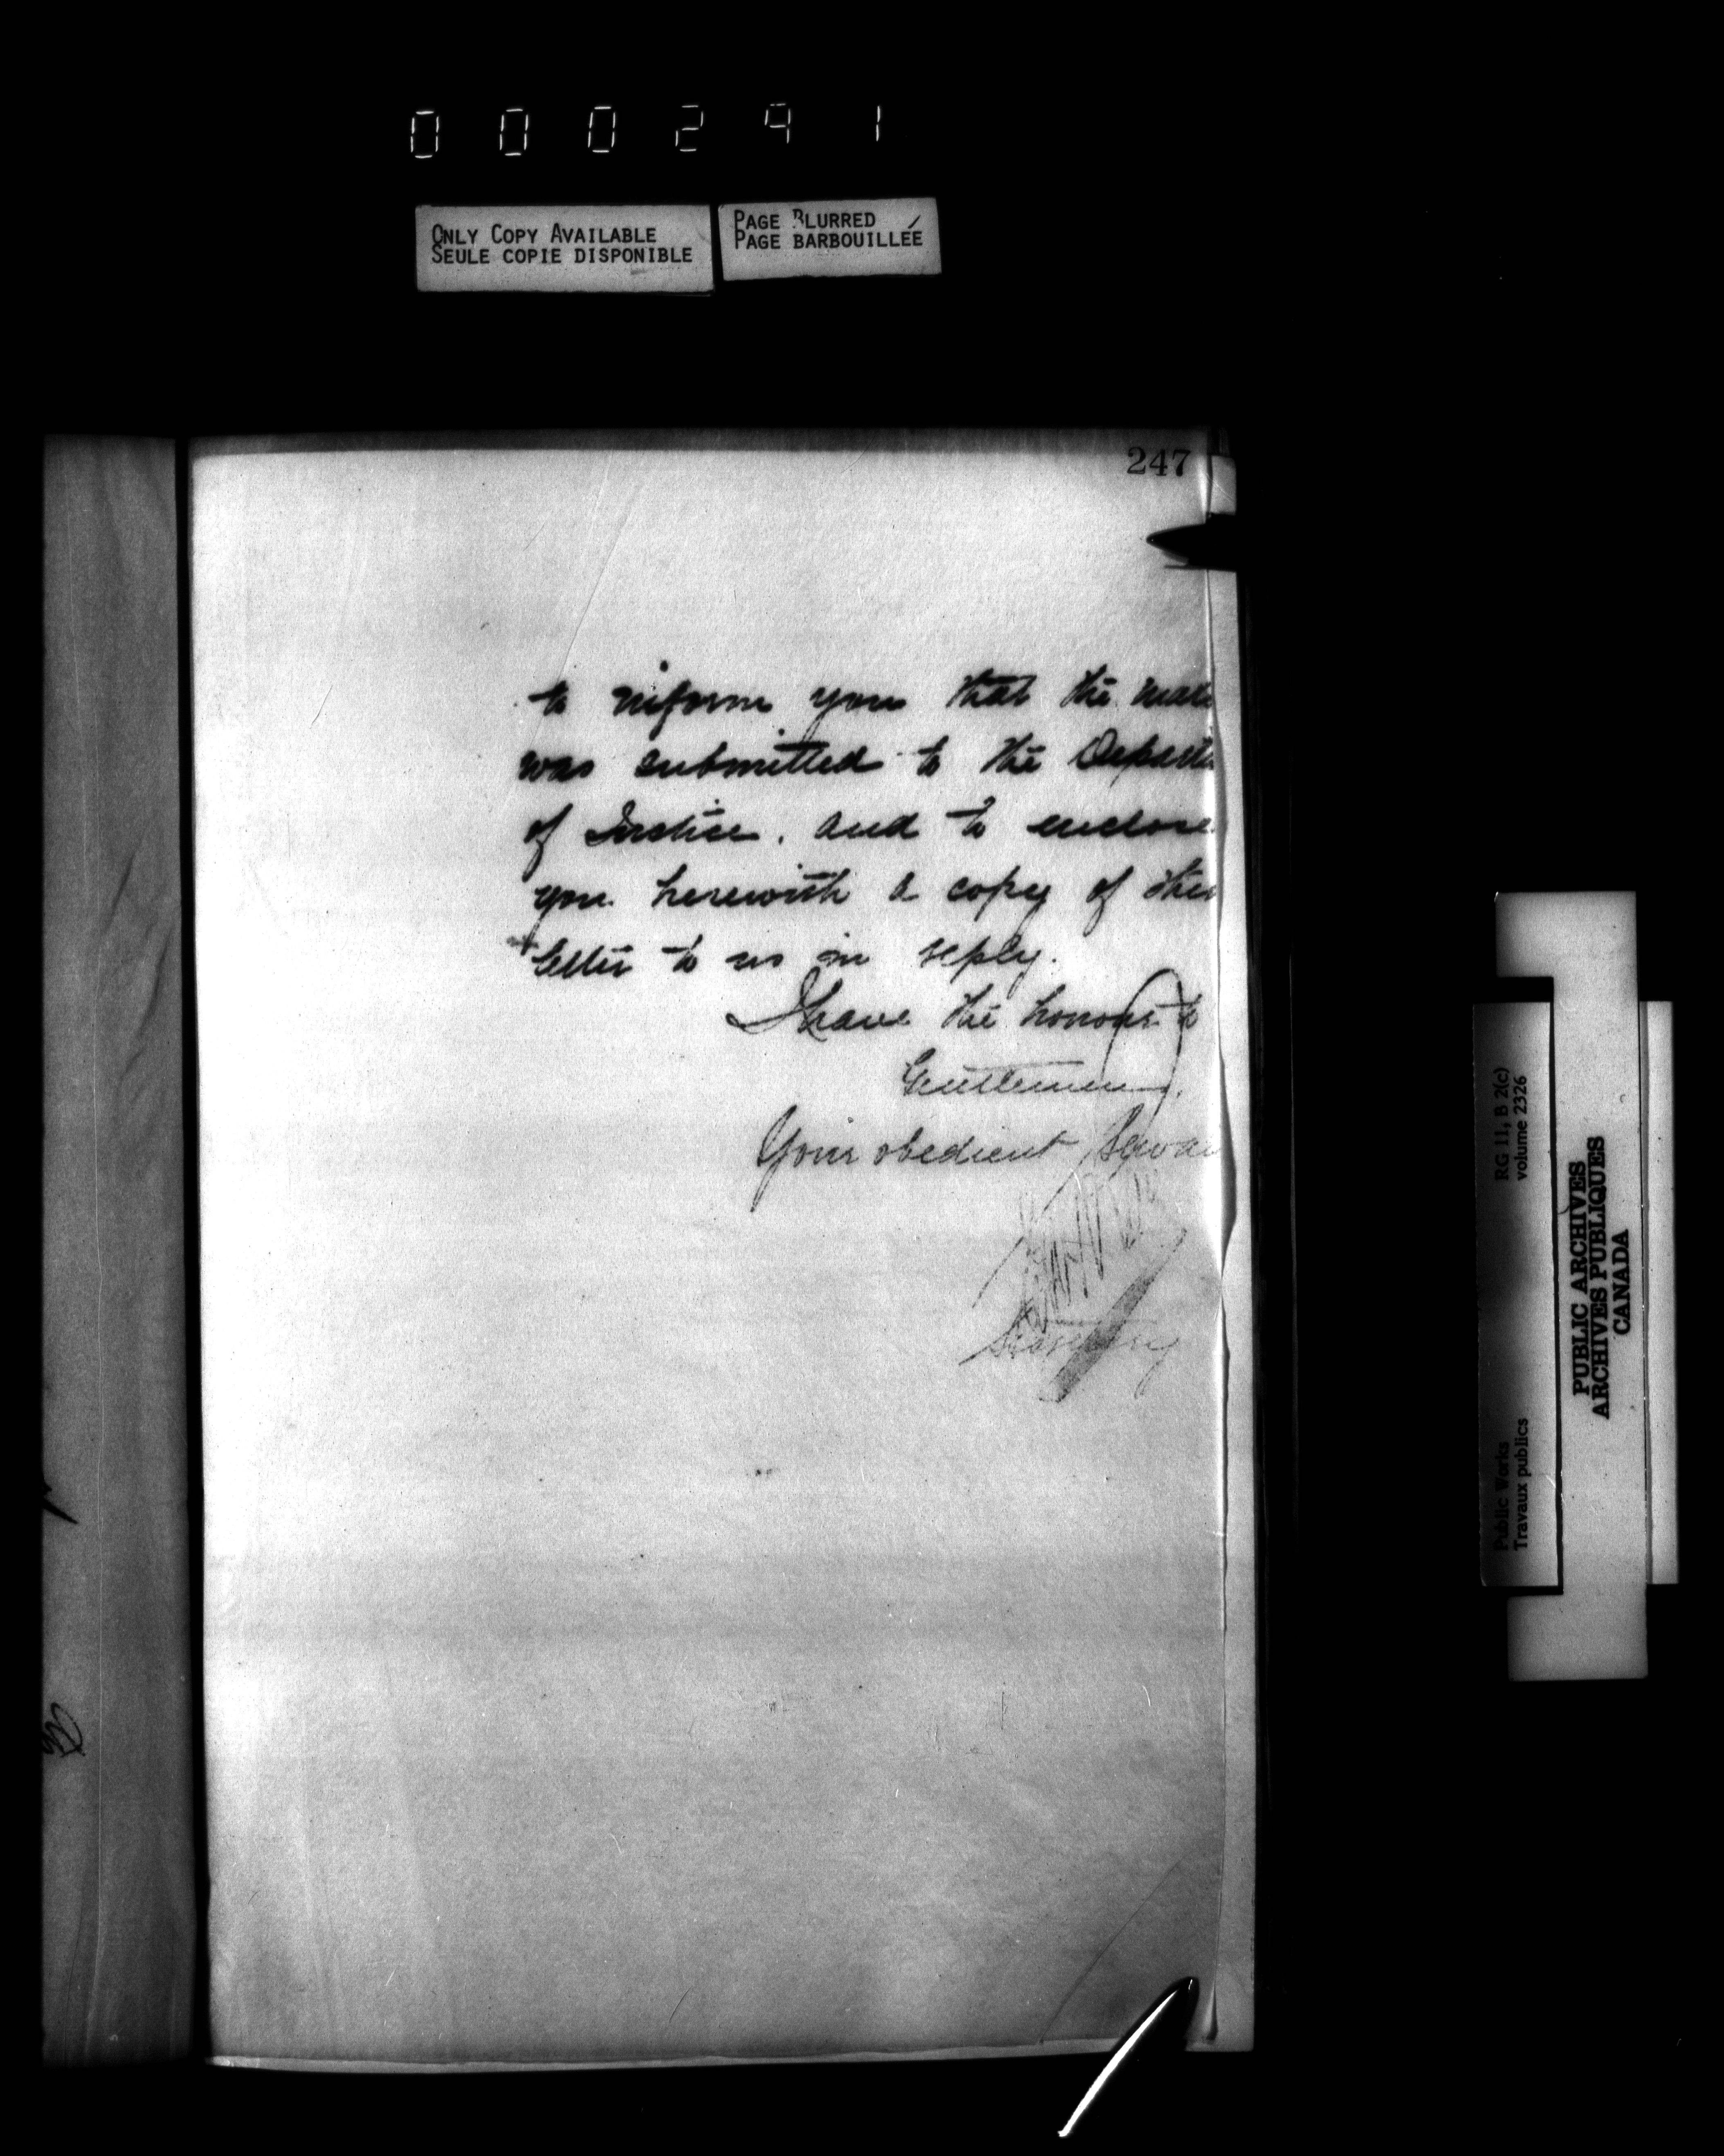 000291
ONLY COPY AVAILABLE
SEULE COPIE DISPONIBLE
PAGE BLURRED
PAGE BARBOUILLÉE
247
to inform you that the
was submitted to the
of Justice. and to enclose
you herewith a copy of
letter to us in reply.
I have the honour to
Gentlemen,
Your obedient
Secretary
RG 11, B 2(c)
volume 2326
Public Works
Travaux publics
PUBLIC ARCHIVES
ARCHIVES PUBLIQUES
CANADA